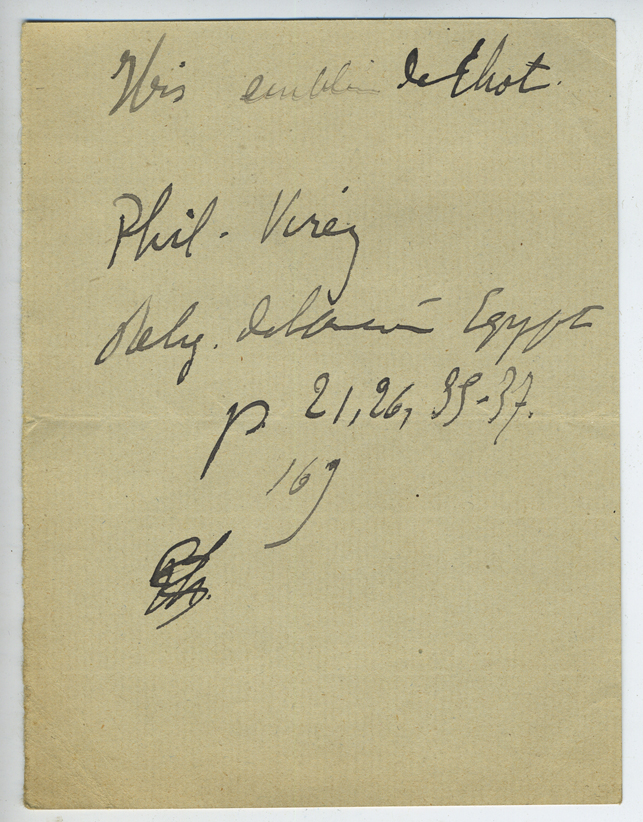 Ibis emblèm de Thot.
Phil. Virey
Relig. de l'ancien Egypte
p. 21, 26, 35-37.
169